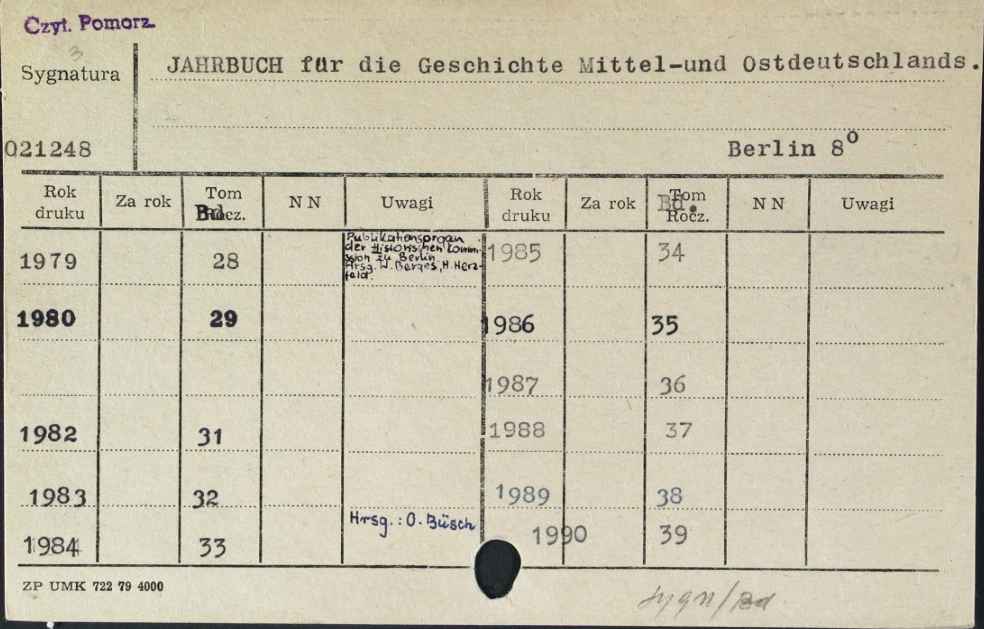 Czyt. Pomorz.
3
Sygnatura
JAHRBUCH für die Geschichte Mittel-und Ostdeutschlands.
021248
Berlin 8°
Rok druku Za rok Tom Bd. Rocz. N N Uwagi Rok druku Za rok Tom Bd. Rocz. N N Uwagi
Publikationsorgan
der Historischen Komm-
ssion zu Berlin
Hrsg. W. Berges, H. Herz-
feld.
1979 28 1985 34
1980 29 1986 35
1987 36
1982 31 1988 37
1983 32 1989 38
Hrsg.: O. Büsch
1984 33 1990 39
ZP UMK 722 79 4000
sygn/Bd